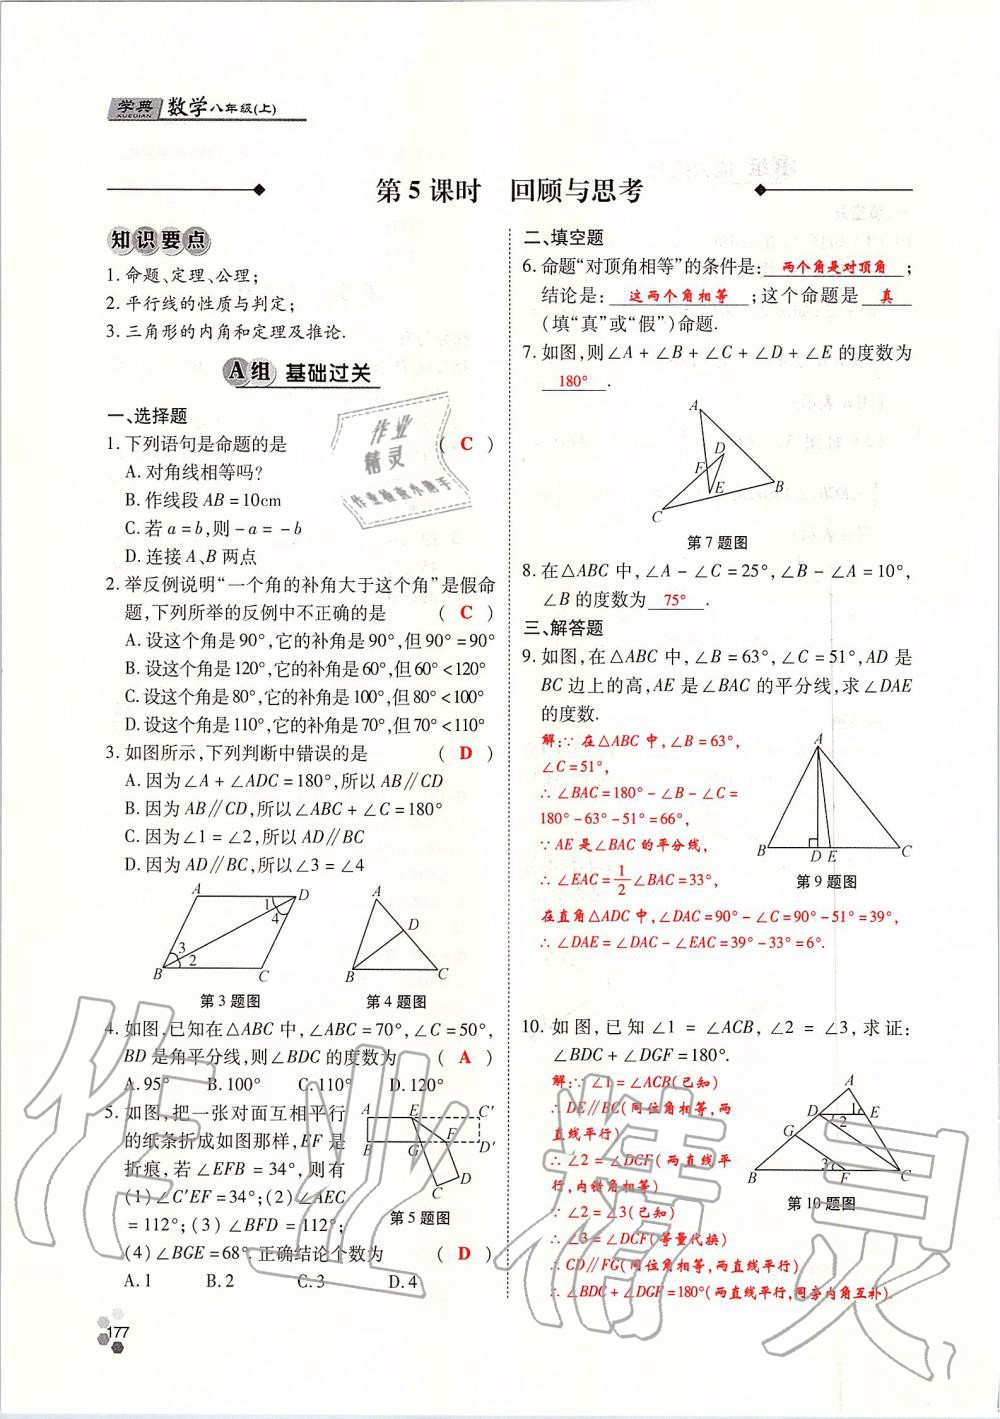 学典 XUEDIAN 数学八年级(上)
第5课时 回顾与思考
知识要点
1.命题、定理、公理;
2.平行线的性质与判定;
3.三角形的内角和定理及推论.
A组 基础过关
一、选择题
1.下列语句是命题的是 ( C )
A.对角线相等吗?
B.作线段AB=10cm
C.若a=b,则-a=-b
D.连接A、B两点
2.举反例说明“一个角的补角大于这个角”是假命
题,下列所举的反例中不正确的是 ( C )
A.设这个角是90°,它的补角是90°,但90°=90°
B.设这个角是120°,它的补角是60°,但60°<120°
C.设这个角是80°,它的补角是100°,但80°<100°
D.设这个角是110°,它的补角是70°,但70°<110°
3.如图所示,下列判断中错误的是 ( D )
A.因为∠A+∠ADC=180°,所以AB∥CD
B.因为AB∥CD,所以∠ABC+∠C=180°
C.因为∠1=∠2,所以AD∥BC
D.因为AD∥BC,所以∠3=∠4
A D 1 4 3 2 B C
第3题图
A D B C
第4题图
4.如图,已知在△ABC中,∠ABC=70°,∠C=50°,
BD是角平分线,则∠BDC的度数为 ( A )
A.95° B.100° C.110° D.120°
5.如图,把一张对面互相平行
的纸条折成如图那样,EF是
折痕,若∠EFB=34°,则有
(1)∠C′EF=34°;(2)∠AEC
=112°;(3)∠BFD=112°;
(4)∠BGE=68°.正确结论个数为 ( D )
A.1 B.2 C.3 D.4
A E C′ B G F D′ C D
第5题图
177
二、填空题
6.命题“对顶角相等”的条件是: 两个角是对顶角 ;
结论是: 这两个角相等 ;这个命题是 真
(填“真”或“假”)命题.
7.如图,则∠A+∠B+∠C+∠D+∠E的度数为
180° .
A D F E B C
第7题图
8.在△ABC中,∠A-∠C=25°,∠B-∠A=10°,
∠B的度数为 75° .
三、解答题
9.如图,在△ABC中,∠B=63°,∠C=51°,AD是
BC边上的高,AE是∠BAC的平分线,求∠DAE
的度数.
解:∵在△ABC中,∠B=63°,
∠C=51°,
∴∠BAC=180°-∠B-∠C=
180°-63°-51°=66°,
∵AE是∠BAC的平分线,
∴∠EAC=1/2∠BAC=33°,
在直角△ADC中,∠DAC=90°-∠C=90°-51°=39°,
∴∠DAE=∠DAC-∠EAC=39°-33°=6°.
A B D E C
第9题图
10.如图,已知∠1=∠ACB,∠2=∠3,求证:
∠BDC+∠DGF=180°.
解:∵∠1=∠ACB(已知)
∴DE∥BC(同位角相等,两
直线平行)
∴∠2=∠DCF(两直线平
行,内错角相等)
∵∠2=∠3(已知)
∴∠3=∠DCF(等量代换)
∴CD∥FG(同位角相等,两直线平行)
∴∠BDC+∠DGF=180°(两直线平行,同旁内角互补).
A D 1 E 2 G 3 B F C
第10题图
作业
精灵
作业检查小助手
作业精灵